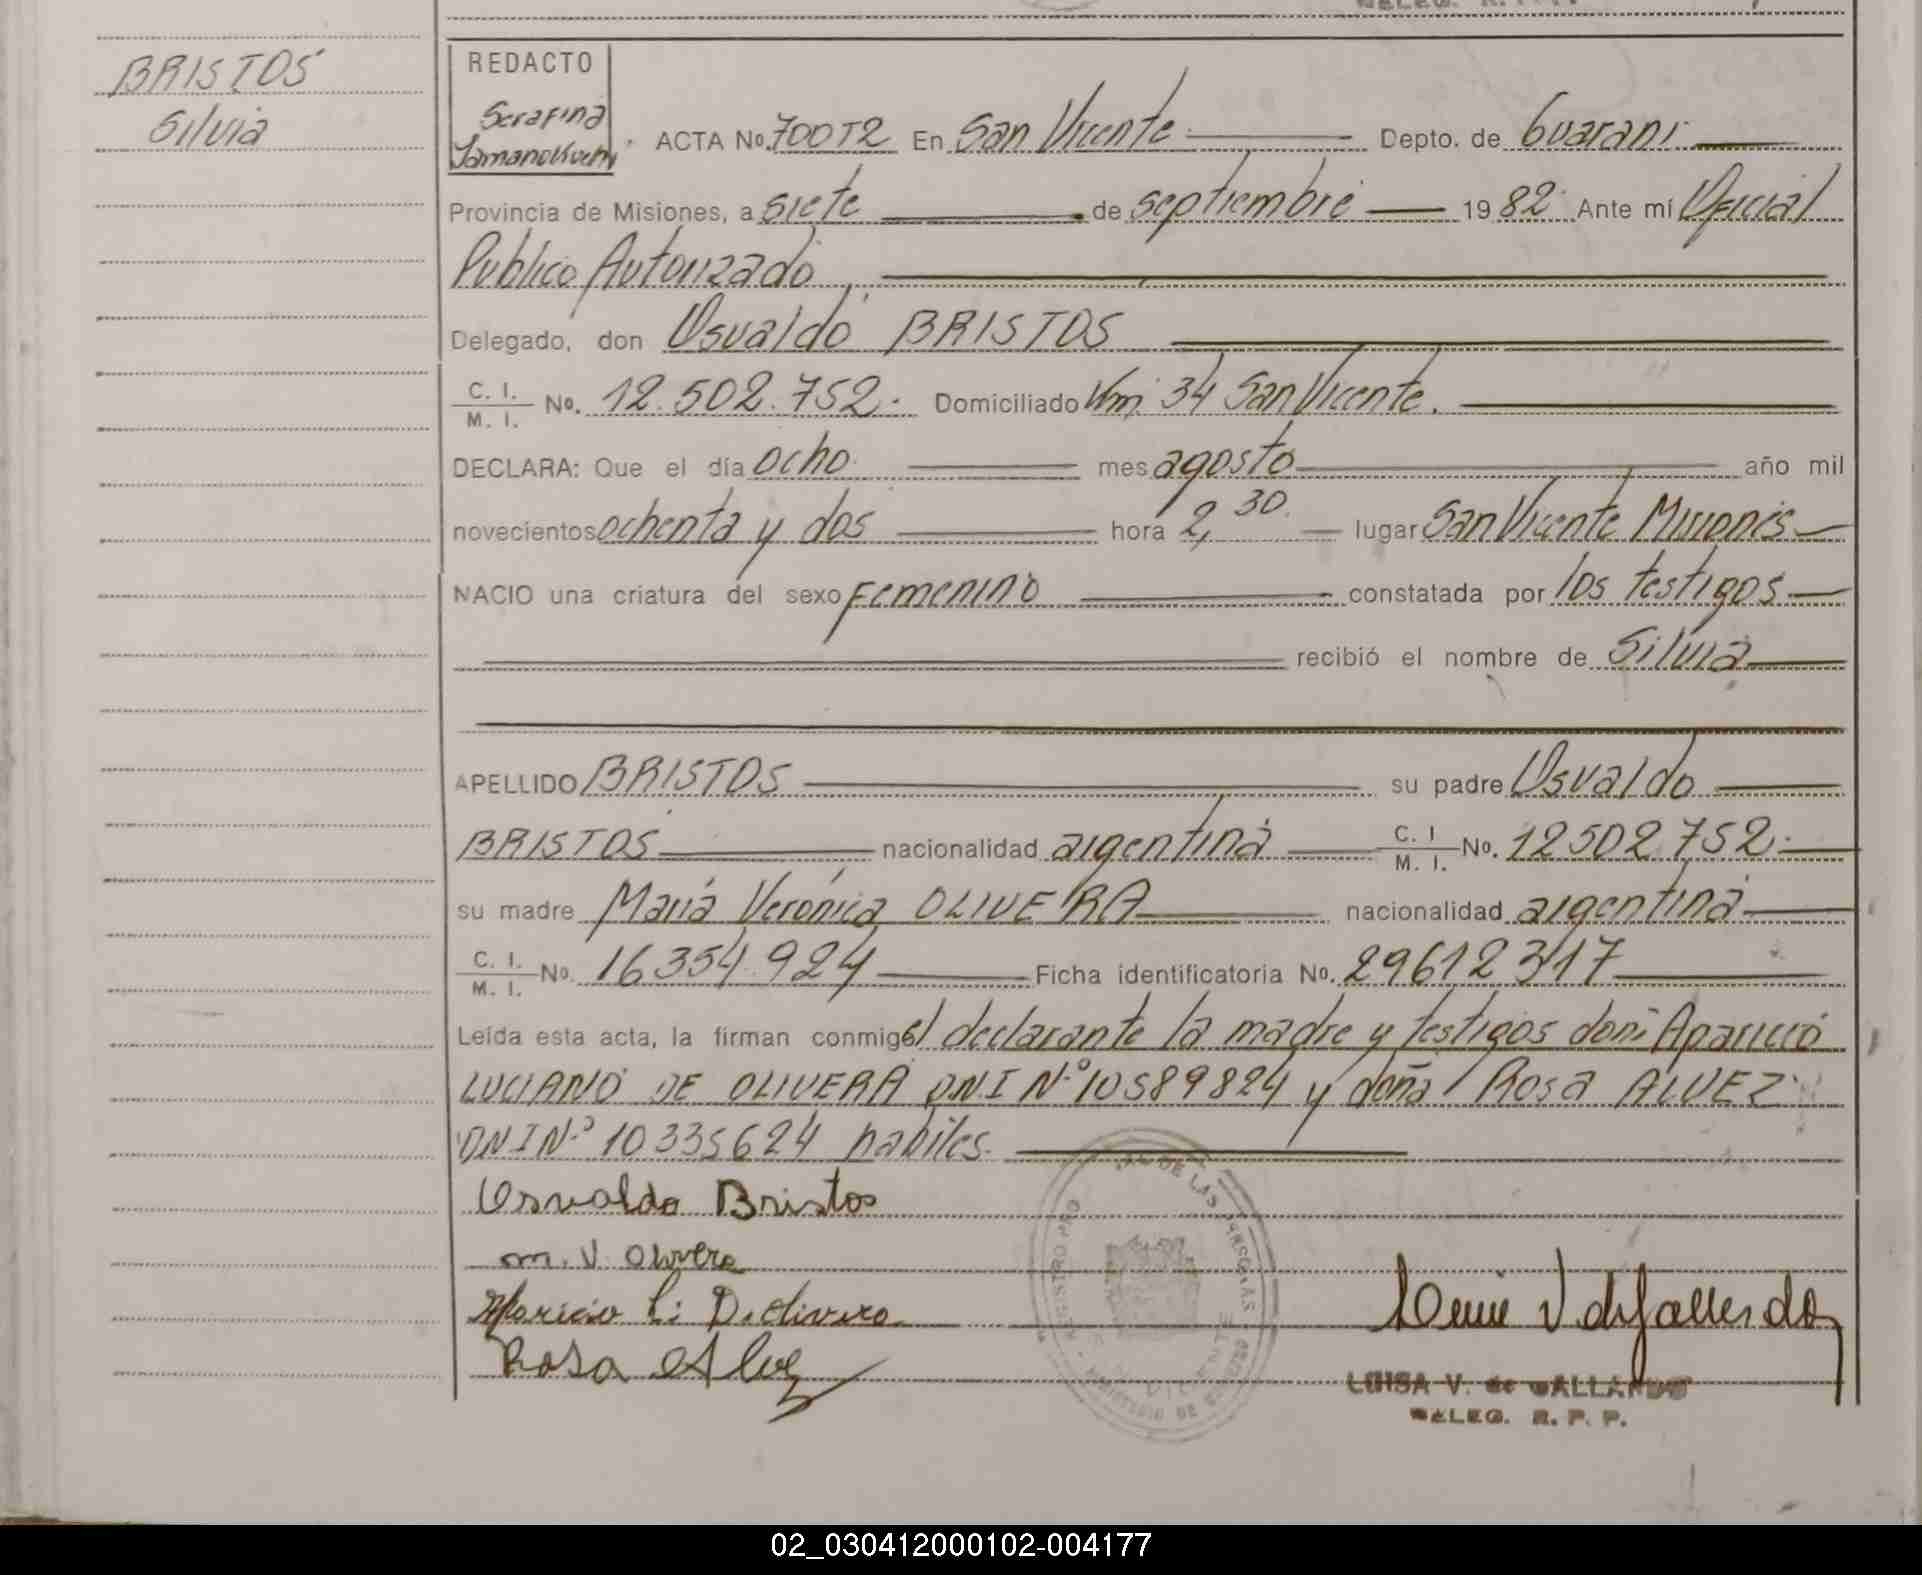 BRISTOS
Silvia
REDACTO
Serafina
ACTA No. 700T2 En San Vicente Depto. de Guaraní
Provincia de Misiones, a siete de septiembre 1982 Ante mí Oficial
Público Autorizado,
Delegado, don Osvaldo BRISTOS
C. I. / M. I. No. 12.502.752. Domiciliado Km. 34 San Vicente.
DECLARA: Que el día ocho mes agosto año mil
novecientos ochenta y dos hora 2,30. lugar San Vicente Misiones
NACIO una criatura del sexo femenino constatada por los testigos
recibió el nombre de Silvia
APELLIDO BRISTOS su padre Osvaldo
BRISTOS nacionalidad argentina C. I / M. I. No. 12502752.
su madre María Verónica OLIVERA nacionalidad argentina
C. I. / M. I. No. 16354.924 Ficha identificatoria No. 29612317
Leída esta acta, la firman conmigo el declarante la madre y testigos don: Aparicio
LUCIANO DE OLIVERA D.N.I Nº 10589824 y doña Rosa ALVEZ
DNI Nº 10335624 habiles.
Osvaldo Bristos
m. V. Olivera
Aparicio L. D. olivera
Rosa Alvez
REGISTRO PRO DE LAS PERSONAS
LUISA V. de GALLARDO
DELEG. R. P. P.
02_030412000102-004177